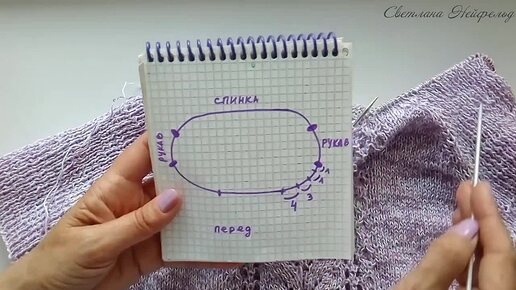 Светлана Нейфельд
СПИНКА
РУКАВ
РУКАВ
1
1
3
4
перед